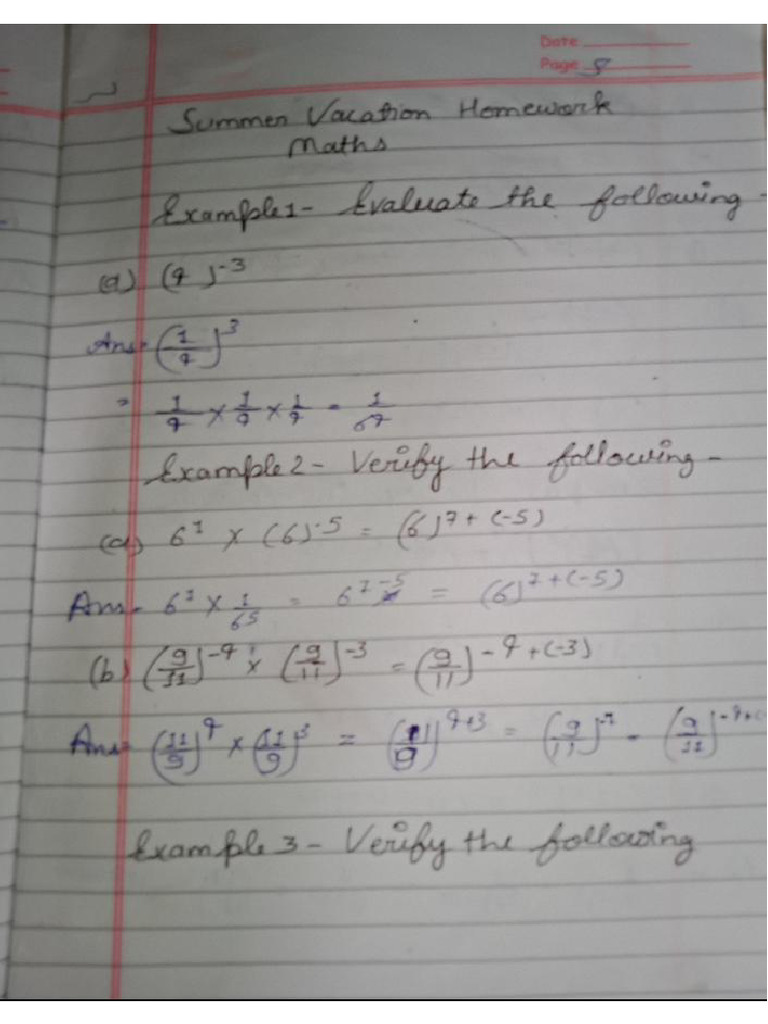 Date
Page 8
Summer Vacation Homework
Maths
Example 1 - Evaluate the following -
(a) (4)^-3
Ans- (1/4)^3
= 1/4 × 1/4 × 1/4 = 1/64
Example 2 - Verify the following -
(a) 6^7 × (6)^-5 = (6)^7+(-5)
Ans- 6^7 × 1/6^5 = 6^7-5 = (6)^7+(-5)
(b) (9/11)^-4 × (9/11)^-3 = (9/11)^-4+(-3)
Ans- (11/9)^4 × (11/9)^3 = (11/9)^4+3 = (9/11)^-7 = (9/11)^-4+(-
Example 3 - Verify the following